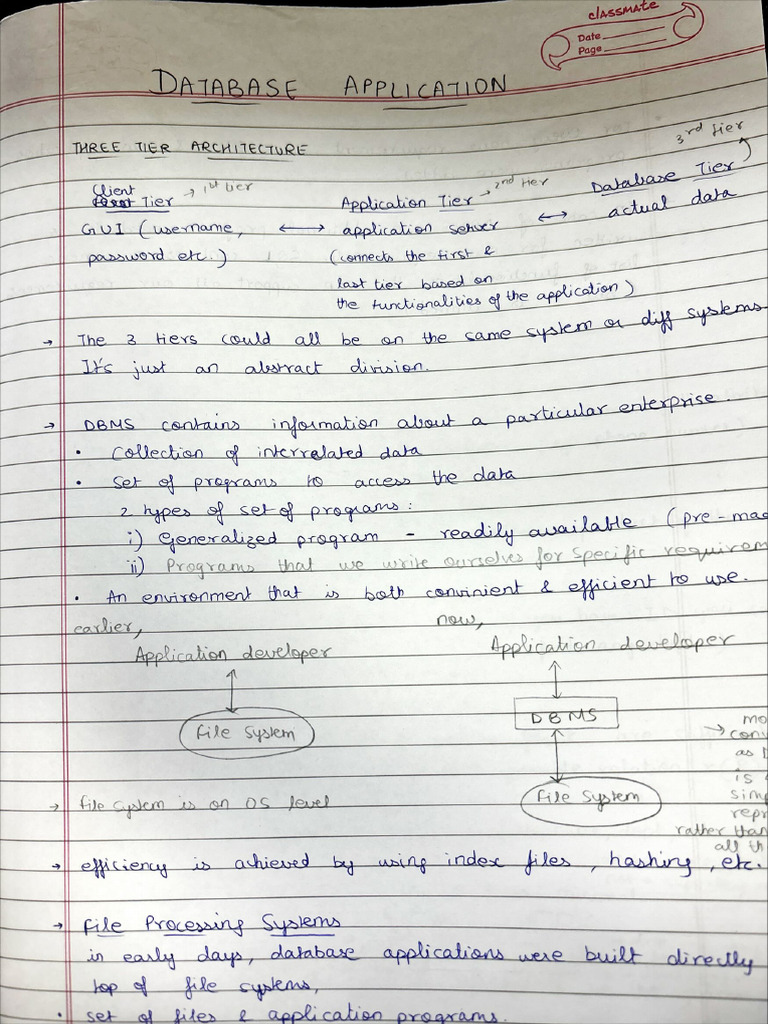 classmate
Date
Page
DATABASE APPLICATION
THREE TIER ARCHITECTURE
3rd tier
Client
Tier → 1st tier
Application Tier → 2nd tier
Database Tier
GUI (username, ↔ application server ↔ actual data
password etc.)
(connects the first &
last tier based on
the functionalities of the application)
→ The 3 tiers could all be on the same system or diff systems
It's just an abstract division.
→ DBMS contains information about a particular enterprise.
• Collection of interrelated data
• Set of programs to access the data
2 types of set of programs:
i) Generalized program - readily available (pre-mad
ii) Programs that we write ourselves for specific requirem
• An environment that is both convinient & efficient to use.
earlier,
now,
Application developer
Application developer
File System
DBMS
File System
→ mo
conv
as
is
simp
repr
rather than
all th
→ file system is on OS level
→ efficiency is achieved by using index files, hashing, etc.
→ File Processing Systems
in early days, database applications were built directly
top of file systems,
• set of files & application programs.